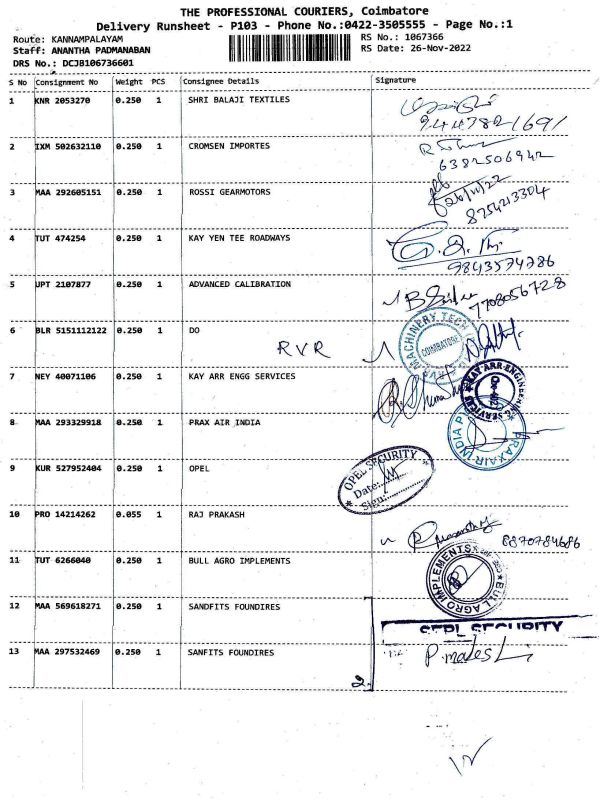 THE PROFESSIONAL COURIERS, Coimbatore
Delivery Runsheet - P103 - Phone No.:0422-3505555 - Page No.:1
Route: KANNAMPALAYAM RS No.: 1067366
Staff: ANANTHA PADMANABAN RS Date: 26-Nov-2022
DRS No.: DCJB106736601
S No Consignment No Weight PCS Consignee Details Signature
1 KNR 2053270 0.250 1 SHRI BALAJI TEXTILES
9447821691
2 IXM 502632110 0.250 1 CROMSEN IMPORTES
6382506942
3 MAA 292605151 0.250 1 ROSSI GEARMOTORS
26/11/22
8754213304
4 TUT 474254 0.250 1 KAY YEN TEE ROADWAYS
9843574786
5 UPT 2107877 0.250 1 ADVANCED CALIBRATION
7708056728
6 BLR 5151112122 0.250 1 DO
RVR
RVR MACHINERY TECH
COIMBATORE
7 NEY 40071106 0.250 1 KAY ARR ENGG SERVICES
KAY ARR ENGINEERING SERVICES
8 MAA 293329918 0.250 1 PRAX AIR INDIA
PRAXAIR INDIA
9 KUR 527952404 0.250 1 OPEL
OPEL SECURITY
Date:
Sign:
10 PRO 14214262 0.055 1 RAJ PRAKASH
8870784686
11 TUT 6266040 0.250 1 BULL AGRO IMPLEMENTS
BULL AGRO IMPLEMENTS
12 MAA 569618271 0.250 1 SANDFITS FOUNDIRES
SECURITY
13 MAA 297532469 0.250 1 SANFITS FOUNDIRES
2